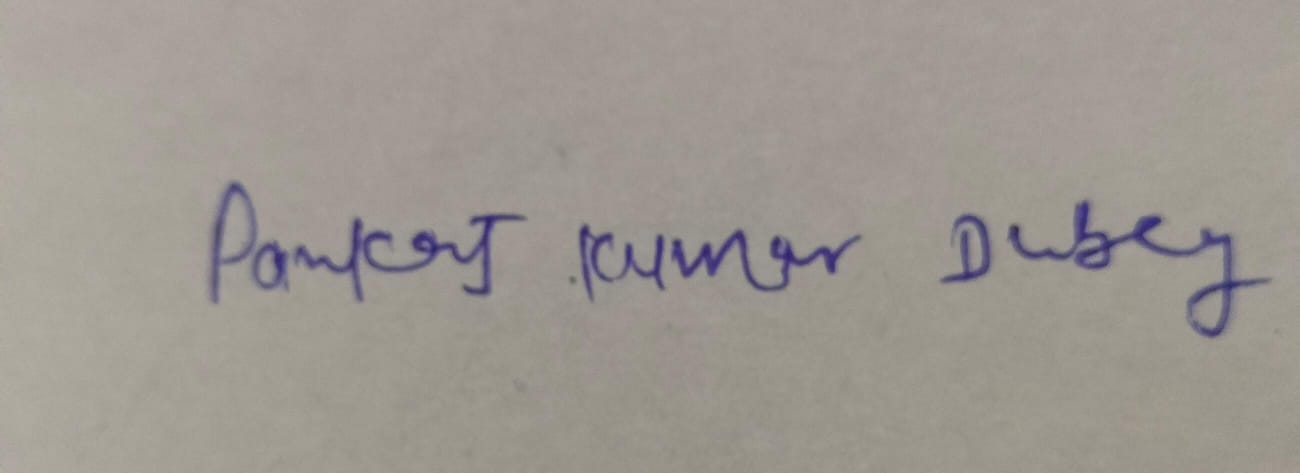 Pankaj Kumar Dubey